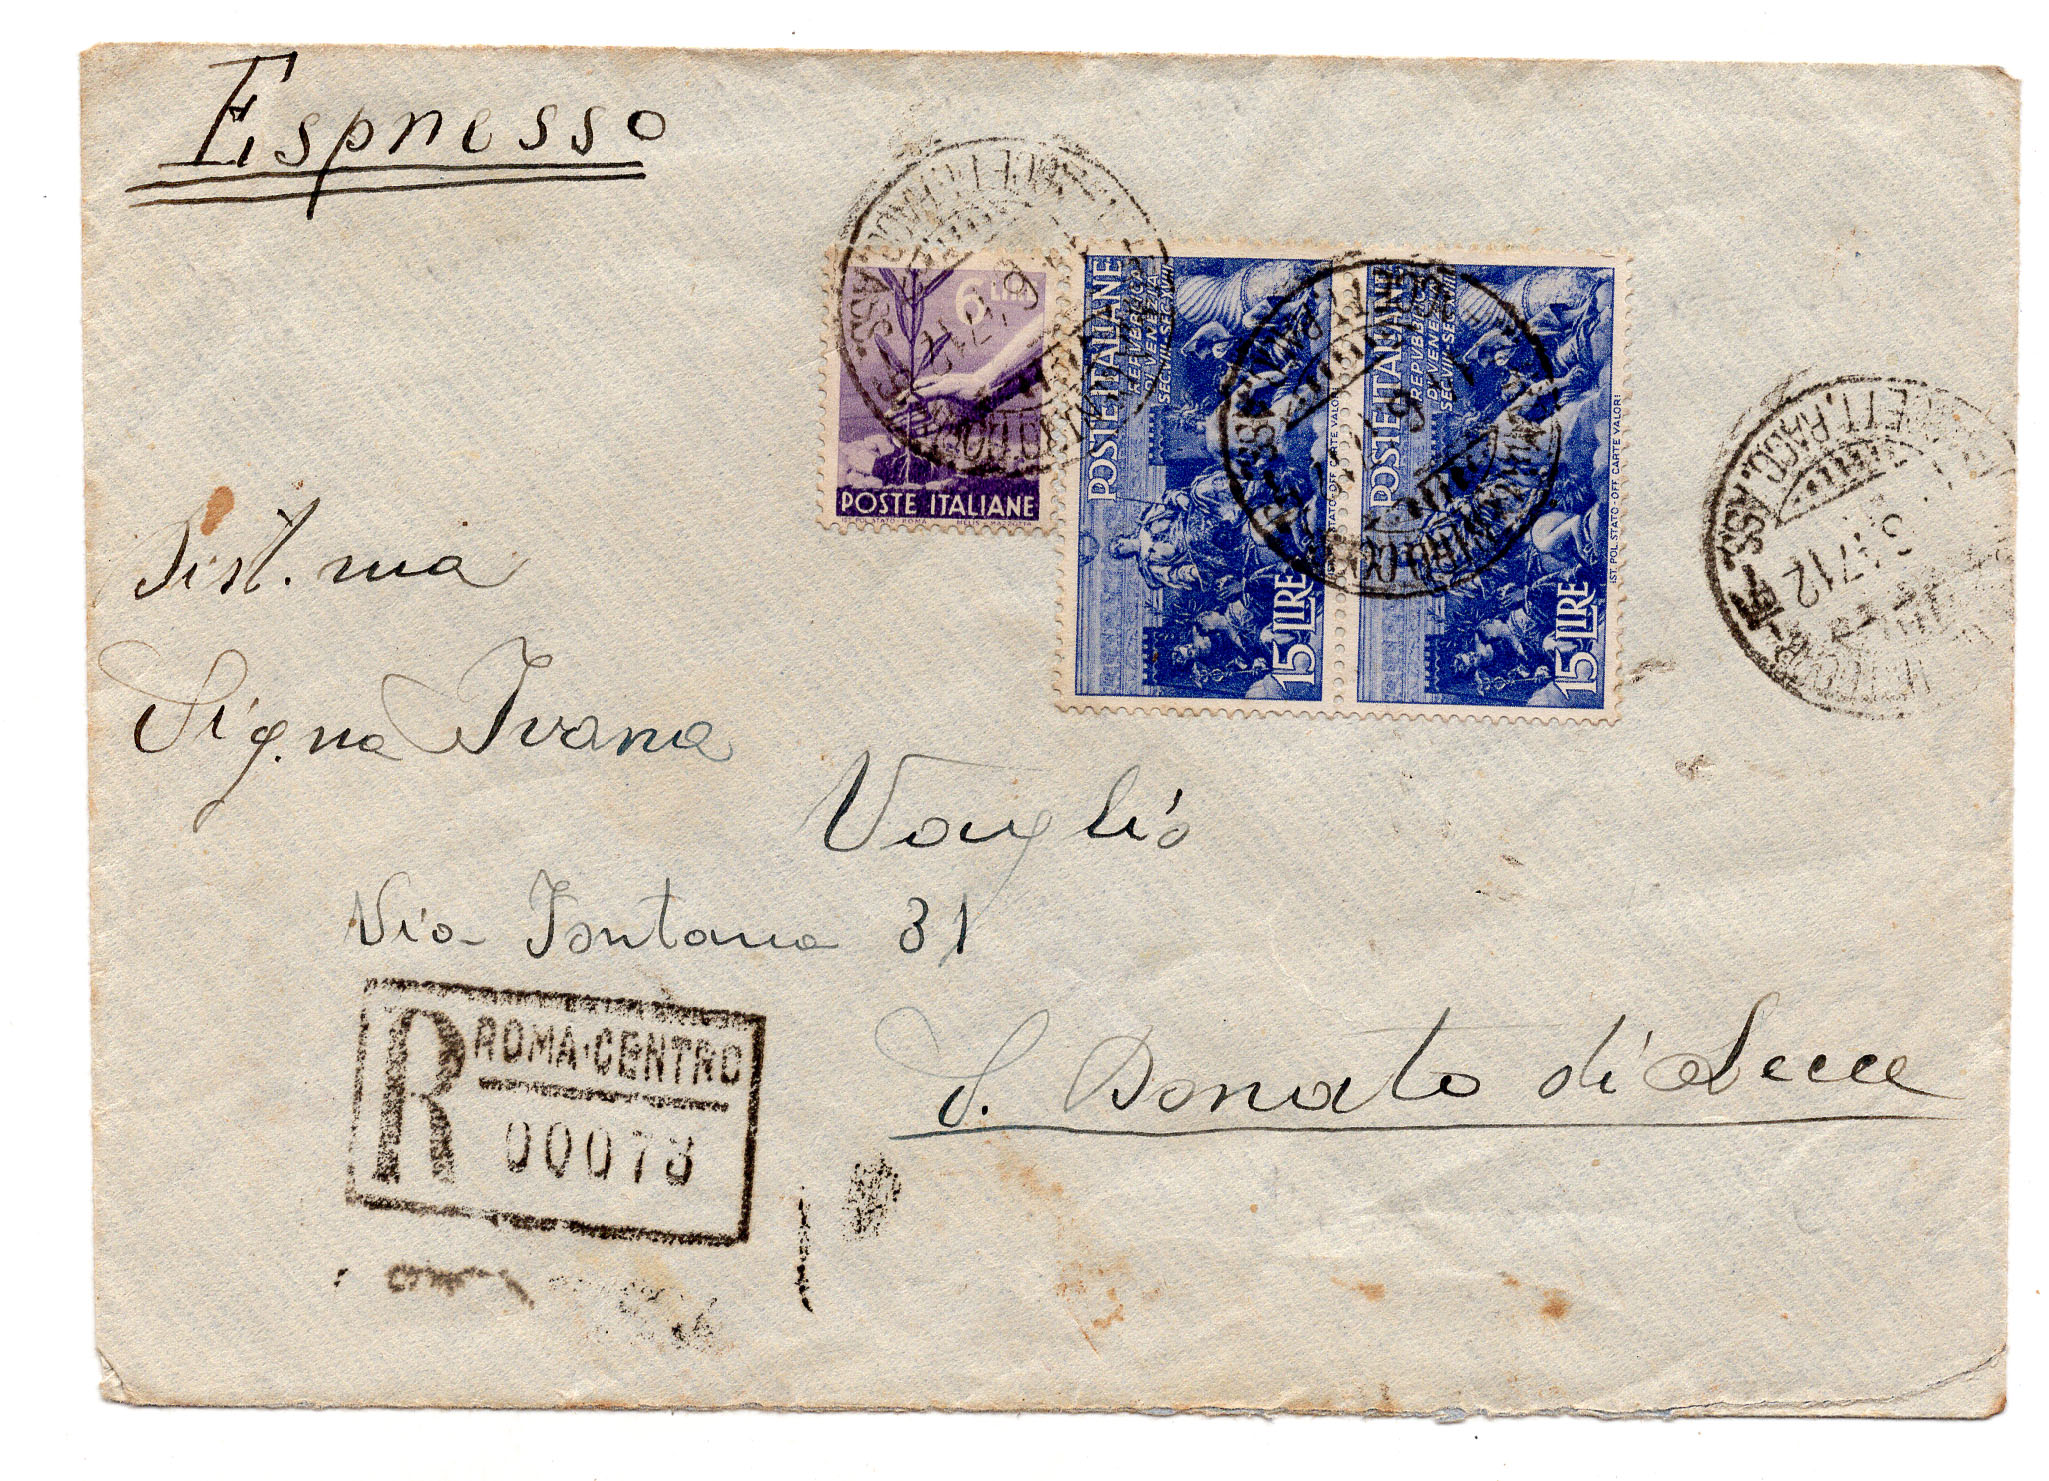 Espresso
6 LIRE
POSTE ITALIANE
IST. POL. STATO · ROMA MELIS · MAZZOTTA
POSTE ITALIANE
REPVBBLICA
DI VENEZIA
SEC·VIII-SEC·XVIII
15 LIRE
POSTE ITALIANE
REPVBBLICA
DI VENEZIA
SEC·VIII-SEC·XVIII
15 LIRE
IST. POL. STATO-OFF. CARTE VALORI
Dist.ma
Sig.na Ivana
Voglio
Via Fontana 31
S. Donato di Lecce
R ROMA·CENTRO
00078